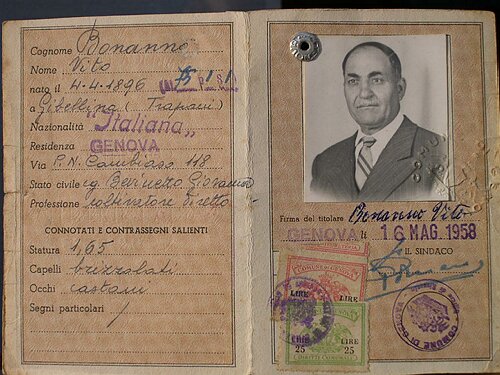 Cognome Bonanno
Nome Vito
nato il 4-4-1896
a Gibellina (Trapani)
Nazionalità "Italiana"
Residenza GENOVA
Via P.N. Cambiaso 118
Stato civile cg. Giovanna
Professione coltivatore diretto
CONNOTATI E CONTRASSEGNI SALIENTI
Statura 1,65
Capelli brizzolati
Occhi castani
Segni particolari
Firma del titolare Bonanno Vito
GENOVA li 16 MAG. 1958
IL SINDACO
COMUNE DI GENOVA
LIRE
LIRE
LIRE
25
LIRE
25
DIRITTI COMUNALI
COMUNE DI GENOVA